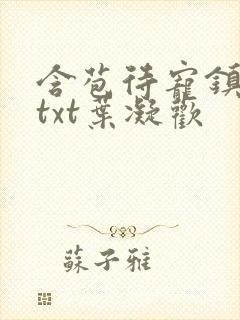 含苞待寵鎮
txt葉凝歡
蘇子雅